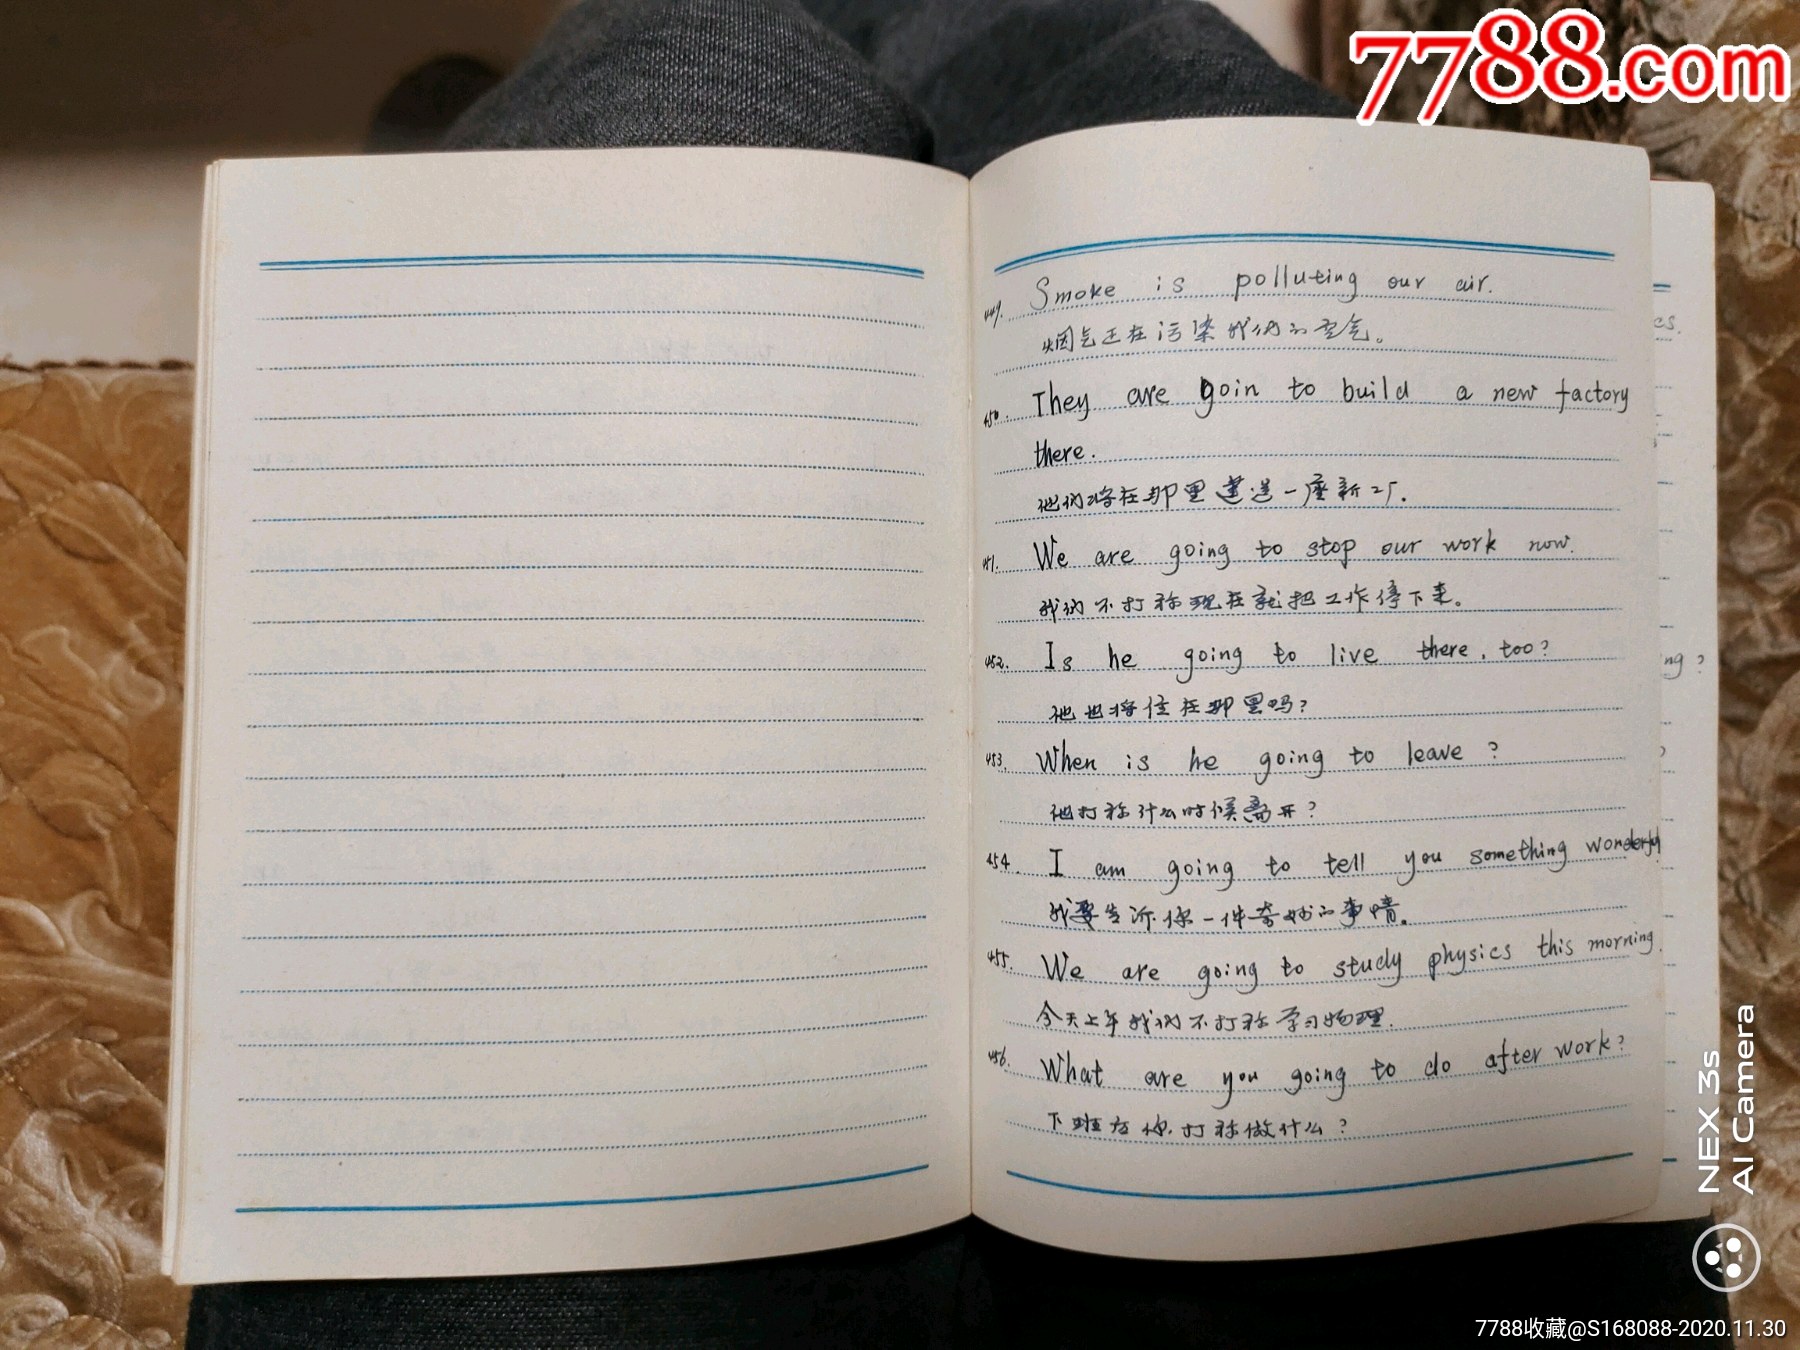 7788.com
449. Smoke is polluting our air.
烟气正在污染我们的空气。
450. They are goin to build a new factory
there.
他们将在那里建造一座新工厂.
451. We are going to stop our work now.
我们不打称现在就把工作停下来。
452. Is he going to live there, too?
他也将住在那里吗?
453. When is he going to leave?
他打称什么时候离开?
454. I am going to tell you something wonderful
我要告诉你一件奇妙的事情。
455. We are going to study physics this morning.
今天上午我们不打称学习物理.
456. What are you going to do after work?
下班后你打称做什么?
cs.
ng?
NEX 3s
AI Camera
7788收藏@S168088-2020.11.30